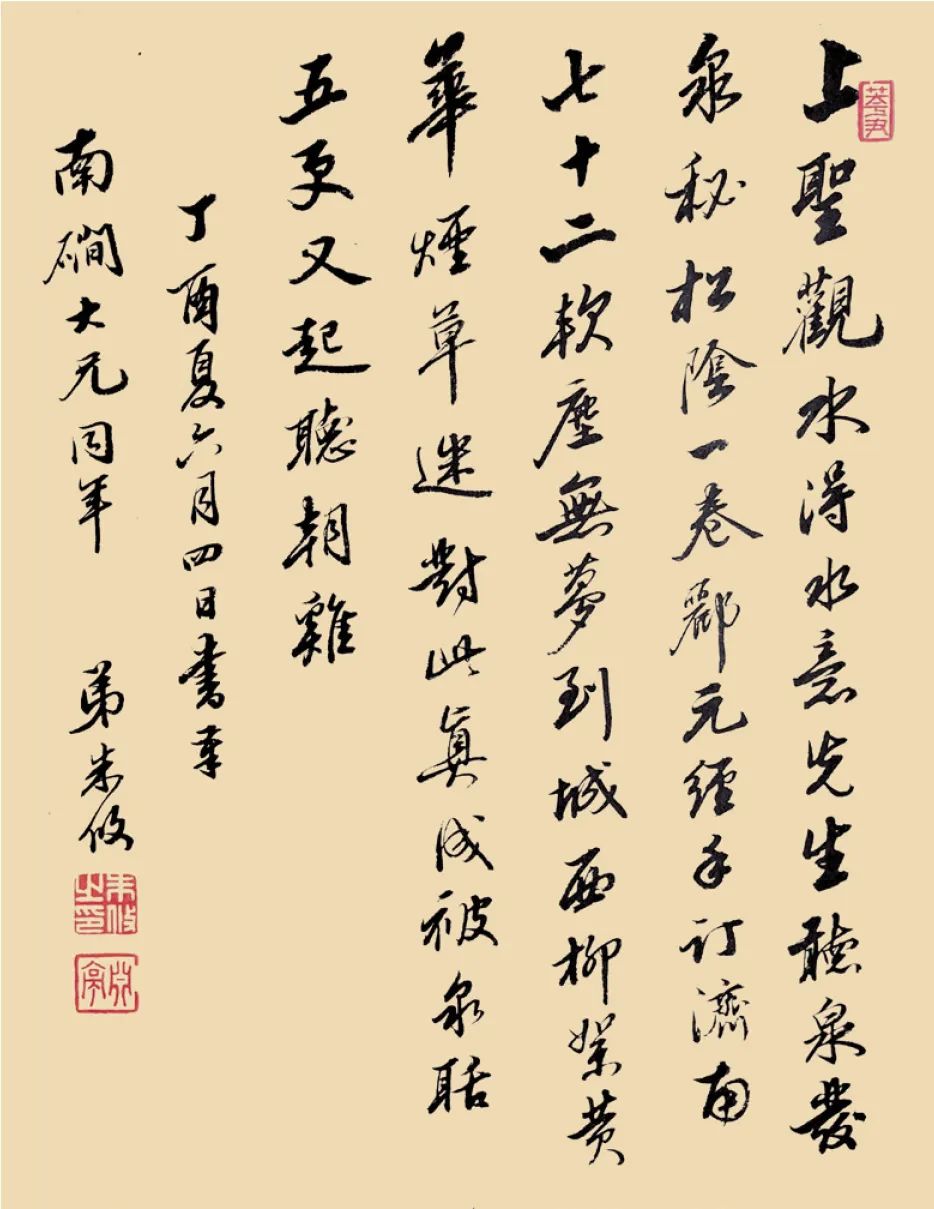 上聖觀水得水意先生聽泉發
泉秘松陰一卷酈元經手訂濟南
七十二軟塵無夢到城西柳絮黃
華煙草迷對此眞成被泉聒
五更又起聽朝雞
丁酉夏六月四日書奉
南磵大兄同年 弟朱攸
朱攸之印